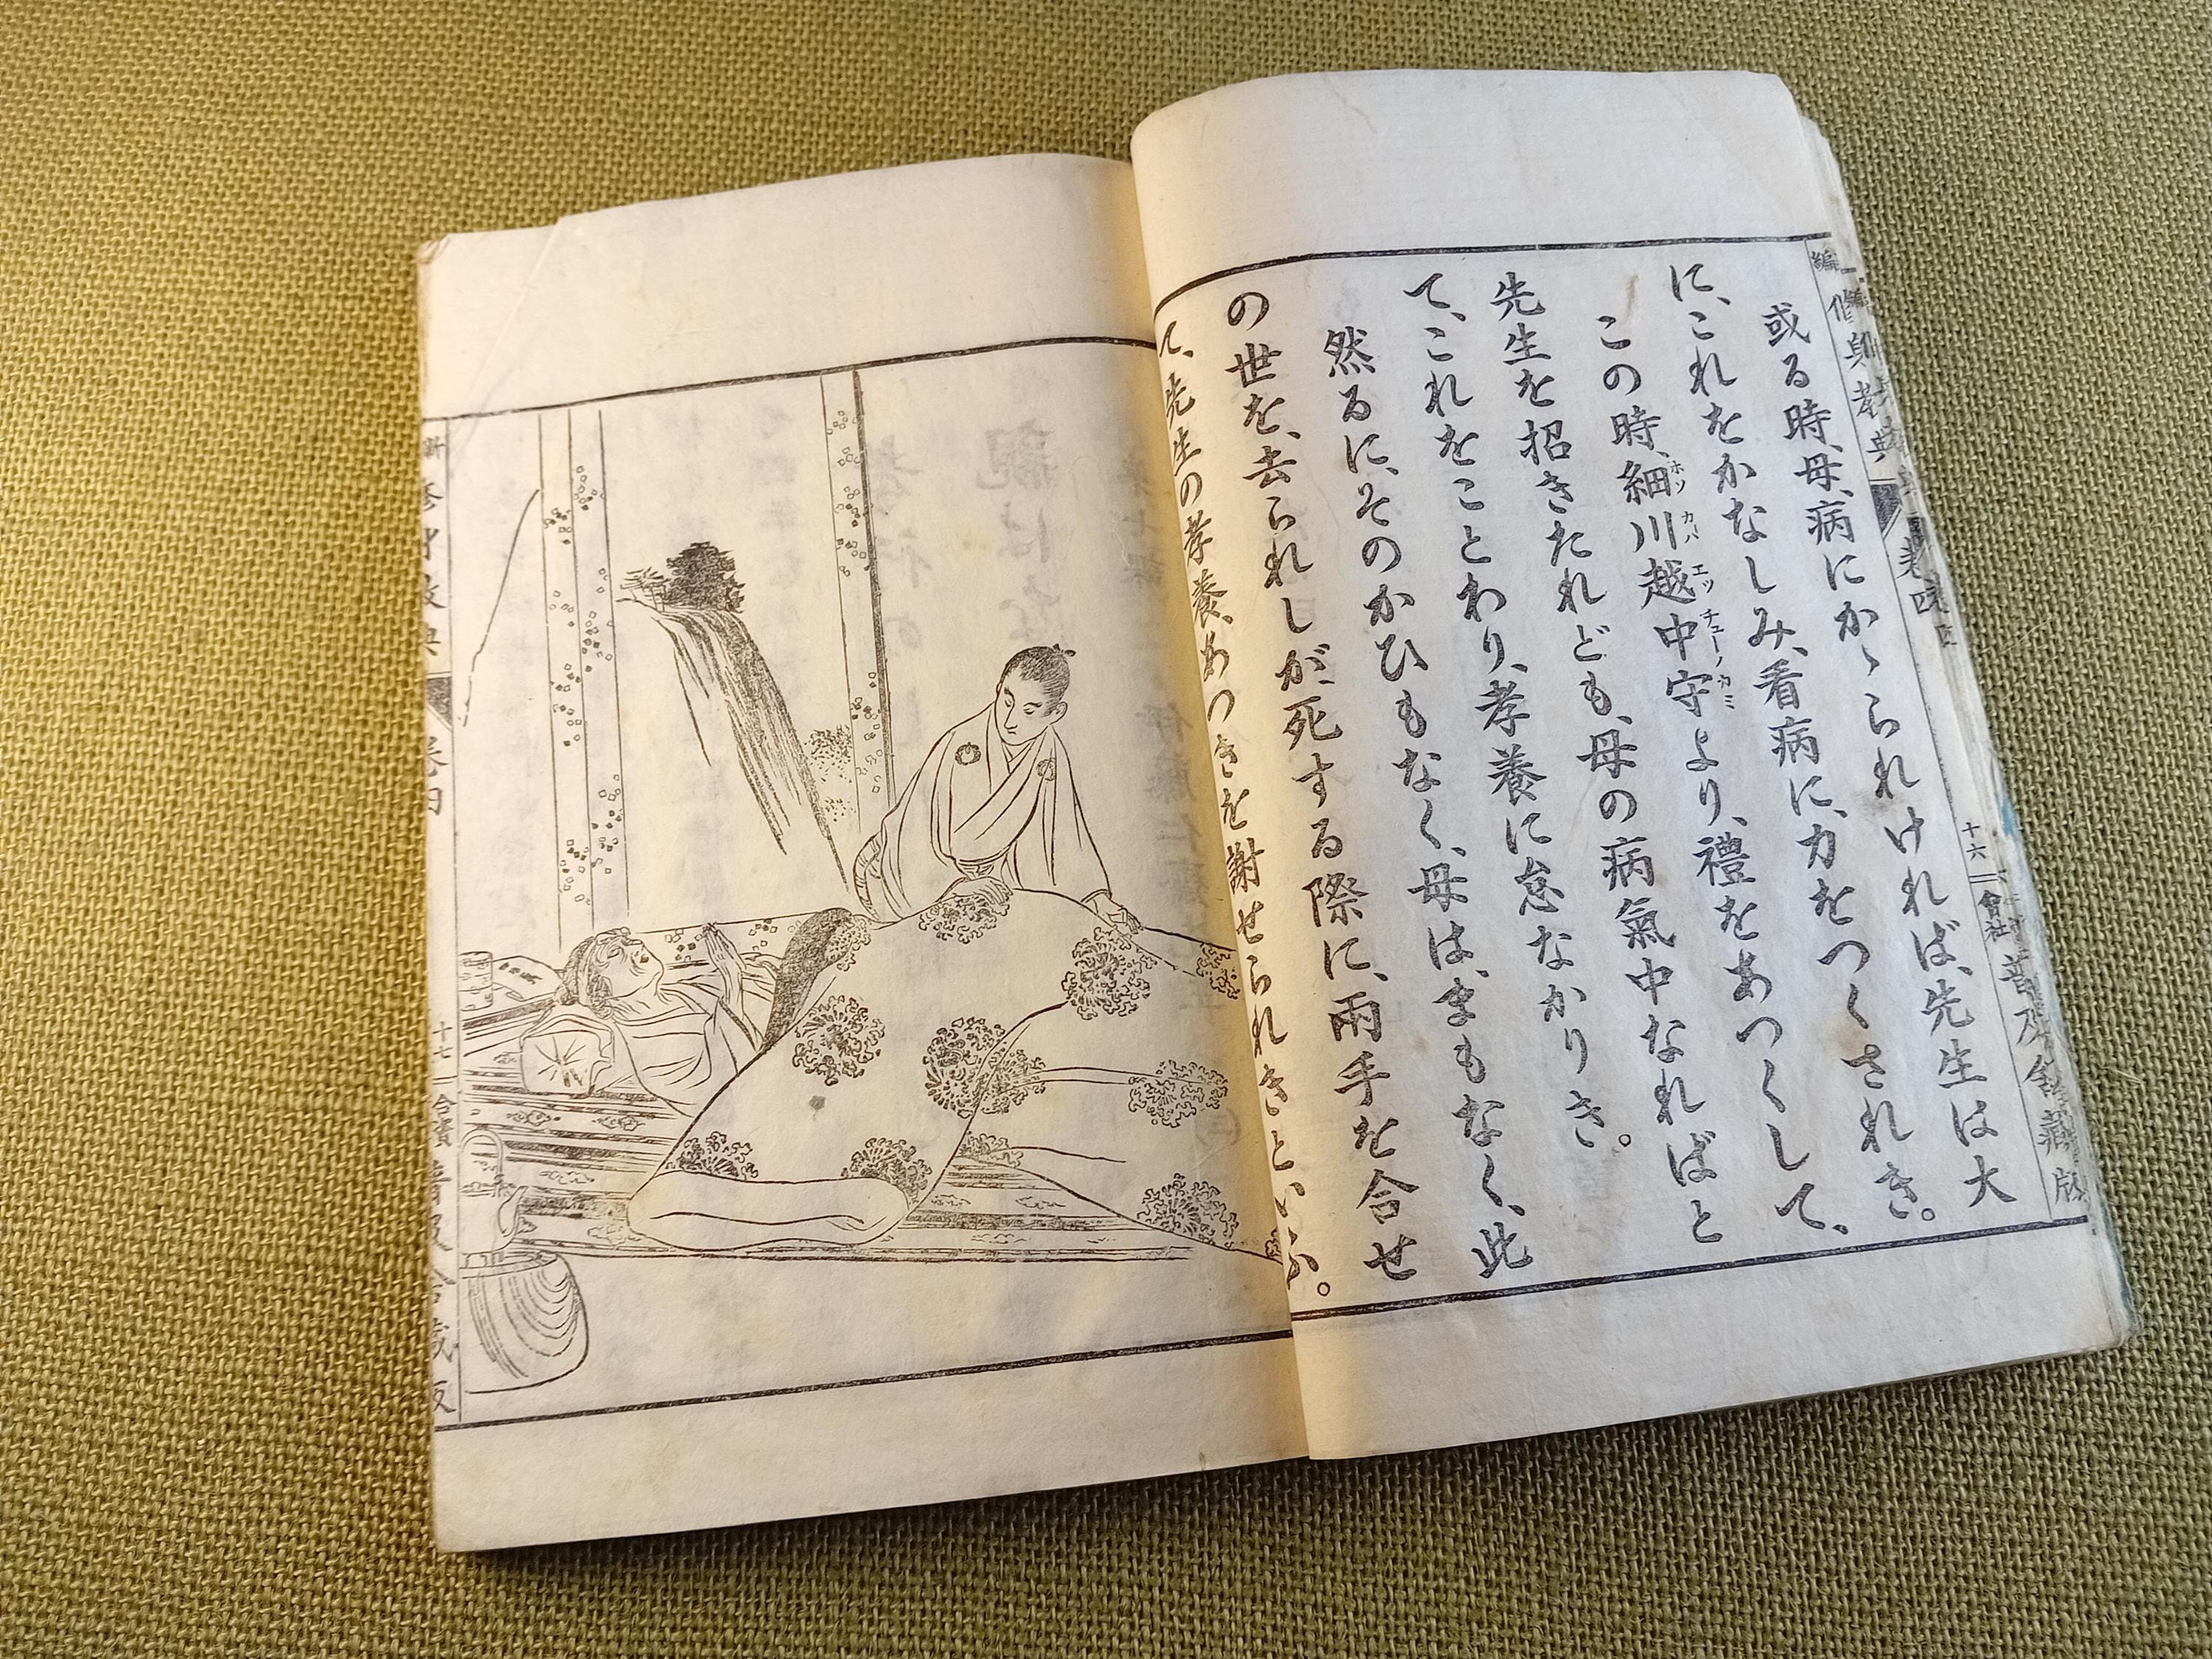 或る時、母、病にかゝられければ、先生は大
に、これをかなしみ、看病に、力をつくされき。
この時、細川越中守より、禮をあつくして、
ホソ カハ エッ チューノ カミ
先生を招きたれども、母の病氣中なればと
て、これをことわり、孝養に怠なかりき。
然るに、そのかひもなく、母は、まもなく、此
の世を、去られしが、死する際に、兩手を合せ
て、先生の孝養、あつきを謝せられきといふ。
修身教典
卷四
十六
會社
普及舍藏版
卷四
十七